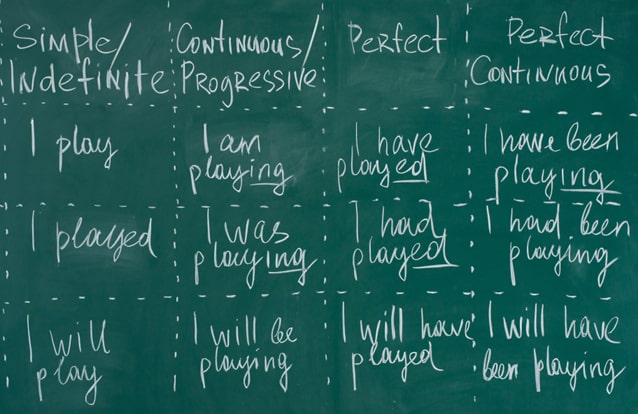 Simple/
Indefinite
Continuous/
Progressive
Perfect
Perfect
Continuous
I play
I am
playing
I have
played
I have been
playing
I played
I was
playing
I had
played
I had been
playing
I will
play
I will be
playing
I will have
played
I will have
been playing